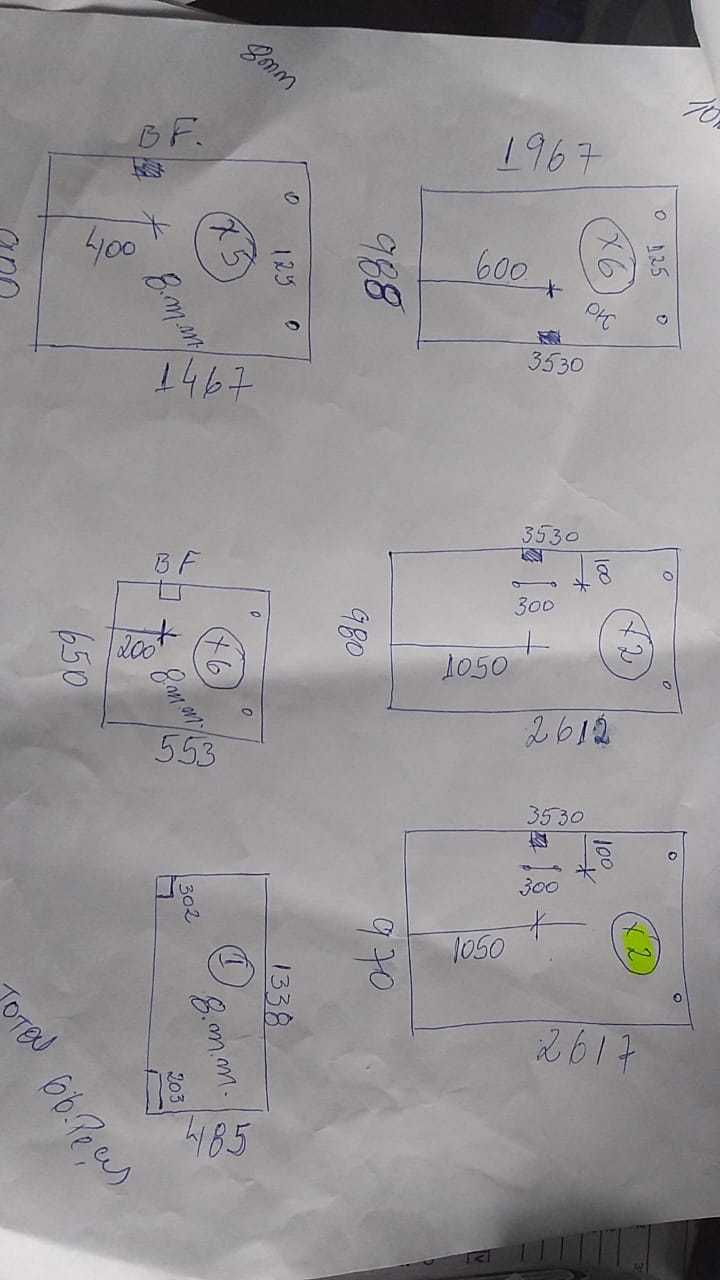 8mm
BF.
400
x5
125
8.m.m.
1467
1967
988
600
x6
125
3530
BF
650
200
x6
8.m.m.
553
3530
100
300
980
x2
1050
2612
302
1
1338
8.m.m.
203
485
3530
100
300
970
x2
1050
2617
Total